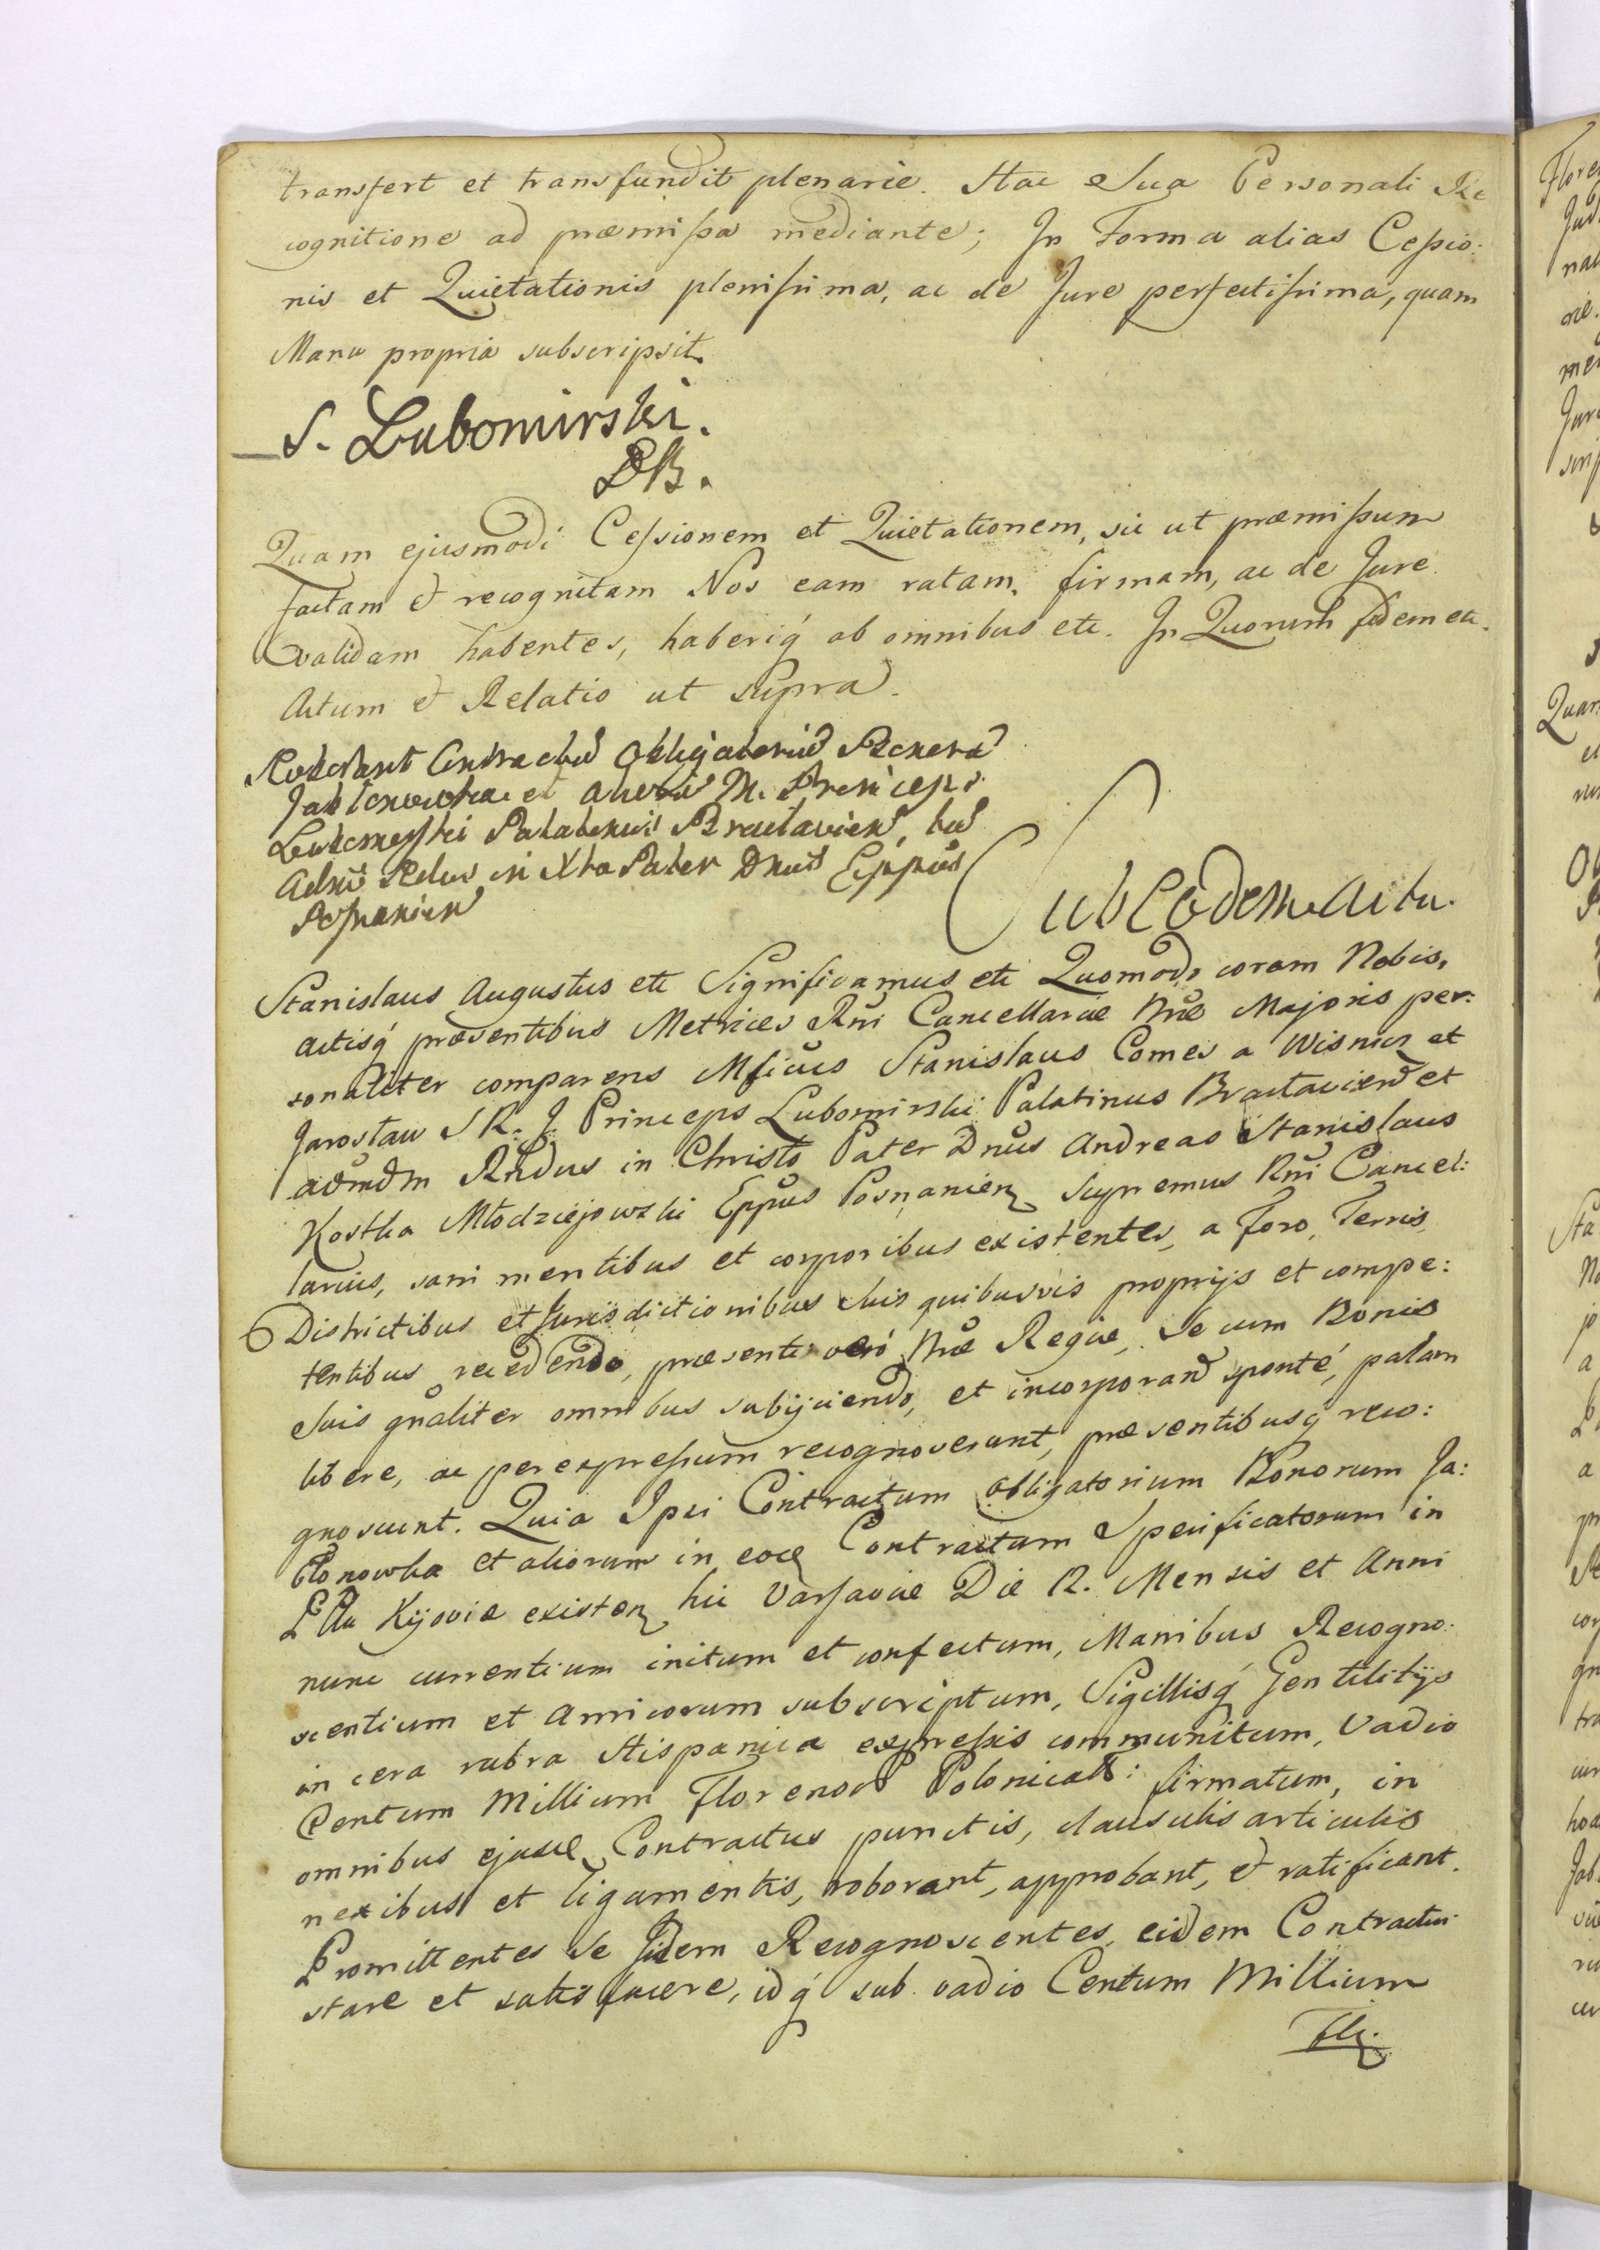 transfert et transfundit plenarie. Hac Sua Personali Re
cognitione ad præmissa mediante; In Forma alias Cessio:
nis et Quietationis plenissima, ac de Jure perfectissima, quam
Manu propria subscripsit.
S. Lubomirski.
Quam ejusmodi Cessionem et Quietationem, sic ut præmissum
factam et recognitam Nos eam ratam, firmam, ac de Jure
validam habentes, haberiq́ ab omnibus etc. In Quorum fidem etc.
Actum et Relatio ut supra.
Roborant Contractũ Obligatoriũ Bonorũ
Jabłonowka et aliorũ M. Princeps
Lubomirski Palatinus Braclavień, tũ
Adm̃ Rdus in Xto Pater Dnus Eppus
Posnanień
Sub Eodem Actu.
Stanislaus Augustus etc Significamus etc Quomodo coram Nobis,
actisq́ præsentibus Metrices Rñi Cancellariæ Nræ Majoris per:
sonaliter comparens Mficus Stanislaus Comes a Wisnicz et
Jarosław S R. J. Princeps Lubomirski Palatinus Braclavień et
admdm Rñdus in Christo Pater Dnus Andreas Stanislaus
Kostka Młodziejowski Eppus Posnanień Supremus Rñi Cancel:
larius, sani mentibus et corporibus existentes, a Foro, Terris,
Districtibus et Jurisdictionibus Suis quibusvis proprijs et compe:
tentibus recedendo, præsenti verò Nræ Regiæ, se cum Bonis
Suis gnãliter omnibus subijciendo, et incorporand sponté, palam
libere, ac per expressum recognoverunt, præsentibusq́ reco:
gnoscunt. Quia Ipsi Contractum obligatorium Bonorum Ja:
błonowka et aliorum in eoce Contractum Specificatorum in
Pttu Kijoviæ existen hic Varsaviæ Die 12. Mensis et Anni
nunc currentium initum et confectum, Manibus Recogno:
scentium et Amicorum subscriptum, Sigillisq́ Gentilitijs
in cera rubra Hispanica expressis communitum, Vadio
Centum Millium Florenor Polonical: firmatum, in
omnibus ejusce Contractus punctis, clausulis articulis
nexibus et ligamentis, roborant, approbant, et ratificant.
Promittentes se Jidem Recognoscentes, eidem Contractui
stare et satisfacere, idq́ sub vadio Centum Millium
Flr.